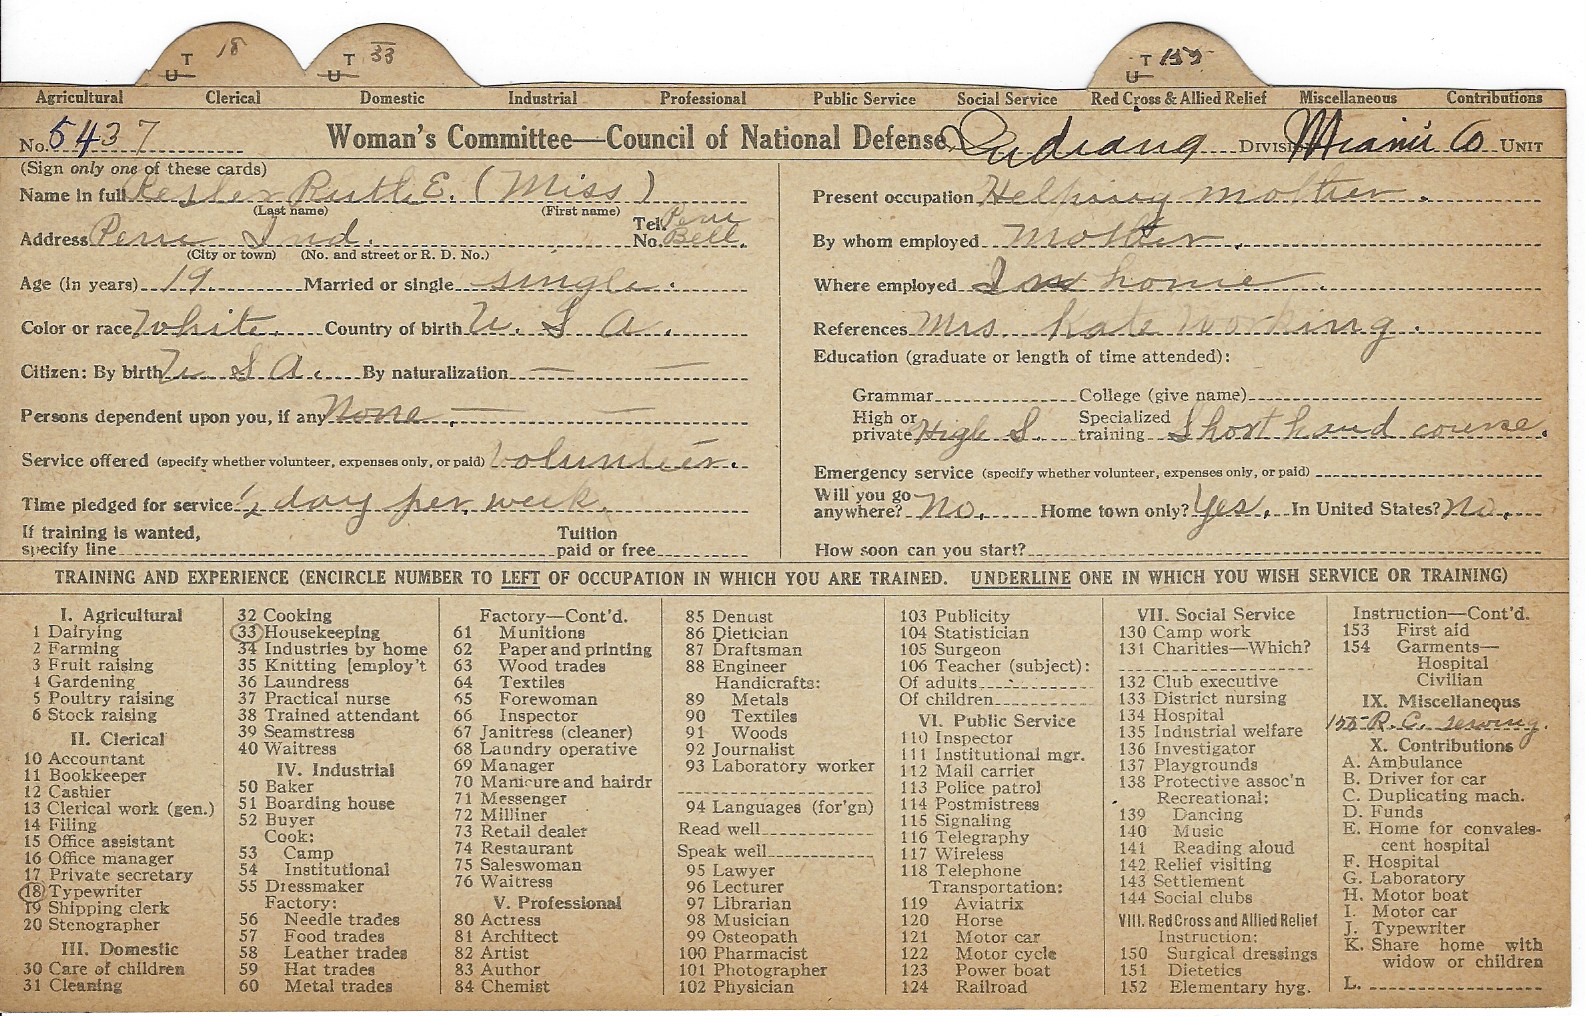 T 18 T 33 T 155
U U U
Agricultural Clerical Domestic Industrial Professional Public Service Social Service Red Cross & Allied Relief Miscellaneous Contributions
No. 5437 Woman's Committee—Council of National Defense, Indiana Division Miami Co Unit
(Sign only one of these cards)
Name in full Ruth E. (Miss)
(Last name) (First name)
Address Peru Ind. Tel. No. Peru Bell.
(City or town) (No. and street or R. D. No.)
Age (in years) 19. Married or single single.
Color or race White. Country of birth U. S. A.
Citizen: By birth U. S. A. By naturalization — —
Persons dependent upon you, if any None. — —
Service offered (specify whether volunteer, expenses only, or paid) Volunteer.
Time pledged for service ½ day per week.
If training is wanted, specify line Tuition paid or free
Present occupation Helping mother.
By whom employed Mother.
Where employed In home.
References Mrs. Kate Working.
Education (graduate or length of time attended):
Grammar College (give name)
High or private High S. Specialized training Short hand course.
Emergency service (specify whether volunteer, expenses only, or paid)
Will you go anywhere? No. Home town only? Yes. In United States? No.
How soon can you start?
TRAINING AND EXPERIENCE (ENCIRCLE NUMBER TO LEFT OF OCCUPATION IN WHICH YOU ARE TRAINED. UNDERLINE ONE IN WHICH YOU WISH SERVICE OR TRAINING)
I. Agricultural
1 Dairying
2 Farming
3 Fruit raising
4 Gardening
5 Poultry raising
6 Stock raising
II. Clerical
10 Accountant
11 Bookkeeper
12 Cashier
13 Clerical work (gen.)
14 Filing
15 Office assistant
16 Office manager
17 Private secretary
18 Typewriter
19 Shipping clerk
20 Stenographer
III. Domestic
30 Care of children
31 Cleaning
32 Cooking
33 Housekeeping
34 Industries by home
35 Knitting [employ't
36 Laundress
37 Practical nurse
38 Trained attendant
39 Seamstress
40 Waitress
IV. Industrial
50 Baker
51 Boarding house
52 Buyer
Cook:
53 Camp
54 Institutional
55 Dressmaker
Factory:
56 Needle trades
57 Food trades
58 Leather trades
59 Hat trades
60 Metal trades
Factory—Cont'd.
61 Munitions
62 Paper and printing
63 Wood trades
64 Textiles
65 Forewoman
66 Inspector
67 Janitress (cleaner)
68 Laundry operative
69 Manager
70 Manicure and hairdr
71 Messenger
72 Milliner
73 Retail dealer
74 Restaurant
75 Saleswoman
76 Waitress
V. Professional
80 Actress
81 Architect
82 Artist
83 Author
84 Chemist
85 Dentist
86 Dietician
87 Draftsman
88 Engineer
Handicrafts:
89 Metals
90 Textiles
91 Woods
92 Journalist
93 Laboratory worker
94 Languages (for'gn)
Read well
Speak well
95 Lawyer
96 Lecturer
97 Librarian
98 Musician
99 Osteopath
100 Pharmacist
101 Photographer
102 Physician
103 Publicity
104 Statistician
105 Surgeon
106 Teacher (subject):
Of adults
Of children
VI. Public Service
110 Inspector
111 Institutional mgr.
112 Mail carrier
113 Police patrol
114 Postmistress
115 Signaling
116 Telegraphy
117 Wireless
118 Telephone
Transportation:
119 Aviatrix
120 Horse
121 Motor car
122 Motor cycle
123 Power boat
124 Railroad
VII. Social Service
130 Camp work
131 Charities—Which?
132 Club executive
133 District nursing
134 Hospital
135 Industrial welfare
136 Investigator
137 Playgrounds
138 Protective assoc'n
Recreational:
139 Dancing
140 Music
141 Reading aloud
142 Relief visiting
143 Settlement
144 Social clubs
VIII. Red Cross and Allied Relief
Instruction:
150 Surgical dressings
151 Dietetics
152 Elementary hyg.
Instruction—Cont'd.
153 First aid
154 Garments—
Hospital
Civilian
IX. Miscellaneous
155 R. C. sewing.
X. Contributions
A. Ambulance
B. Driver for car
C. Duplicating mach.
D. Funds
E. Home for convales-
cent hospital
F. Hospital
G. Laboratory
H. Motor boat
I. Motor car
J. Typewriter
K. Share home with
widow or children
L.